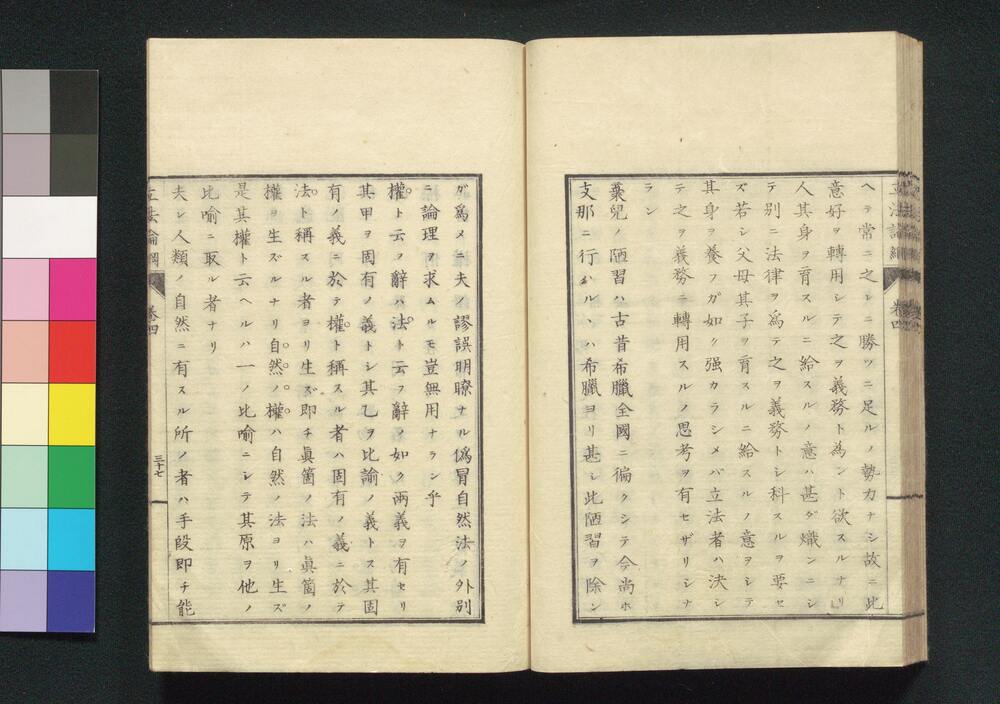 ヘテ常ニ之レニ勝ツニ足ルノ勢力ナシ故ニ此
意好ヲ轉用シテ之ヲ義務ト為ント欲スルナリ」
人其身ヲ育スルニ給スルノ意ハ甚ダ熾ンニシ
テ別ニ法律ヲ為テ之ヲ義務トシ科スルヲ要セ
ズ若シ父母其子ヲ育スルニ給スルノ意ヲシテ
其身ヲ養フガ如ク强カラシメバ立法者ハ決シ
テ之ヲ義務ニ轉用スルノ思考ヲ有セザリシナ
ラン
棄兒ノ陋習ハ古昔希臘全國ニ徧クシテ今尚ホ
支那ニ行ハル丶ハ希臘ヨリ甚シ此陋習ヲ除ン
立法論綱
卷四
三十七
ガ為メニ夫ノ謬誤明瞭ナル偽冒自然法ノ外別
ニ論理ヲ求ムルモ豈無用ナラン乎
權ト云ノ辭ハ法ト云フ辭ノ如ク兩義ヲ有セリ
其甲ヲ固有ノ義トシ其乙ヲ比諭ノ義トス其固
有ノ義ニ於テ權ト稱スル者ハ固有ノ義ニ於テ
法ト稱スル者ヨリ生ズ即チ眞箇ノ法ハ眞箇ノ
權ヲ生ズルナリ自然ノ權ハ自然ノ法ヨリ生ズ
是其權ト云ヘルハ一ノ比喻ニシテ其原ヲ他ノ
比喻ニ取ル者ナリ
夫レ人類ノ自然ニ有スル所ノ者ハ手段即チ能